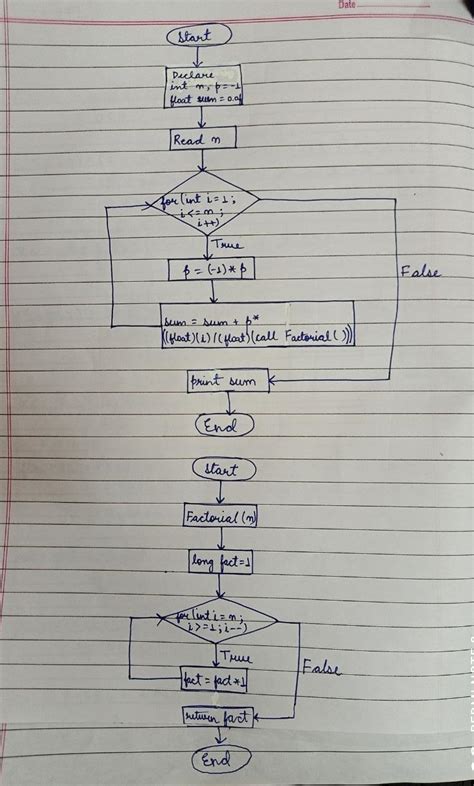 Date
Start
Declare
int n, p=-1
float sum=0.0f
Read n
for(int i=1;
i<=n;
i++)
True
False
p = (-1)*p
sum = sum + p*
((float)(i)/(float)(call Factorial()))
print sum
End
Start
Factorial(n)
long fact=1
for(int i=n;
i>=1;i--)
True
False
fact = fact*1
return fact
End